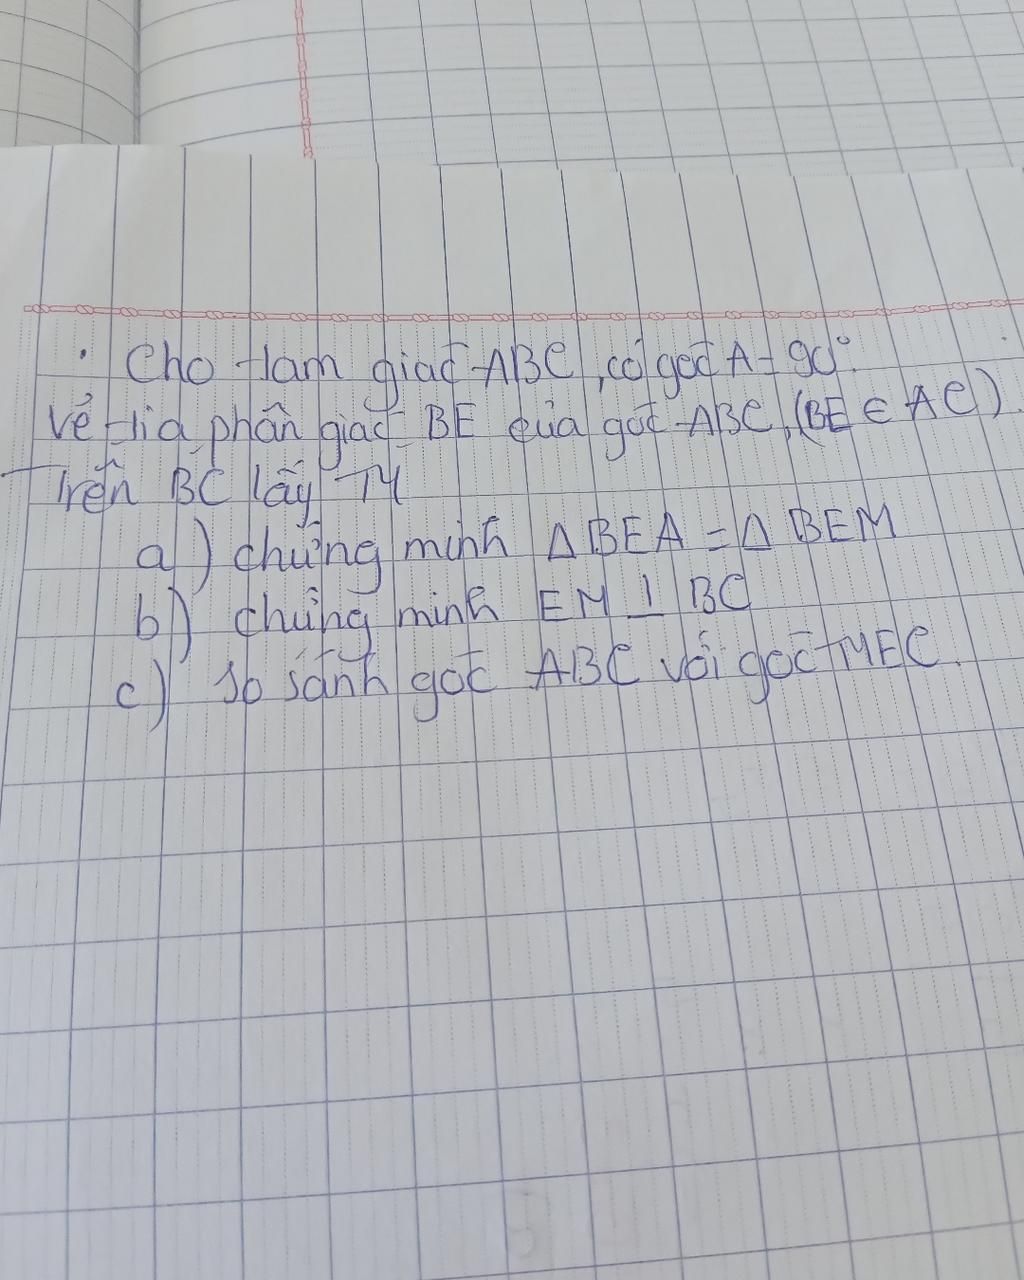 Cho tam giác ABC, có góc A = 90°.
Vẽ tia phân giác BE của góc ABC, (BE ∈ AC).
Trên BC lấy M
a) chứng minh Δ BEA = Δ BEM
b) chứng minh EM ⊥ BC
c) so sánh góc ABC với góc MEC.